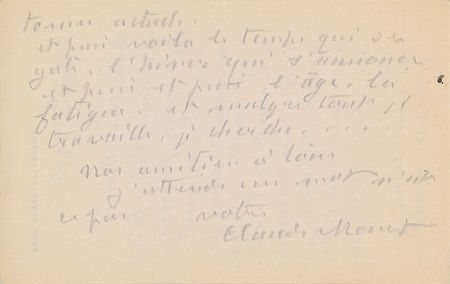 et puis voila le temps qui se
gate, l'hiver qui s'annonce
et puis et puis l'âge, la
fatigue. et malgré tout, je
travaille, je cherche, . . . .
Nos amitiés à tous
j'attends un mot n'est
ce pas votre
Claude Monet